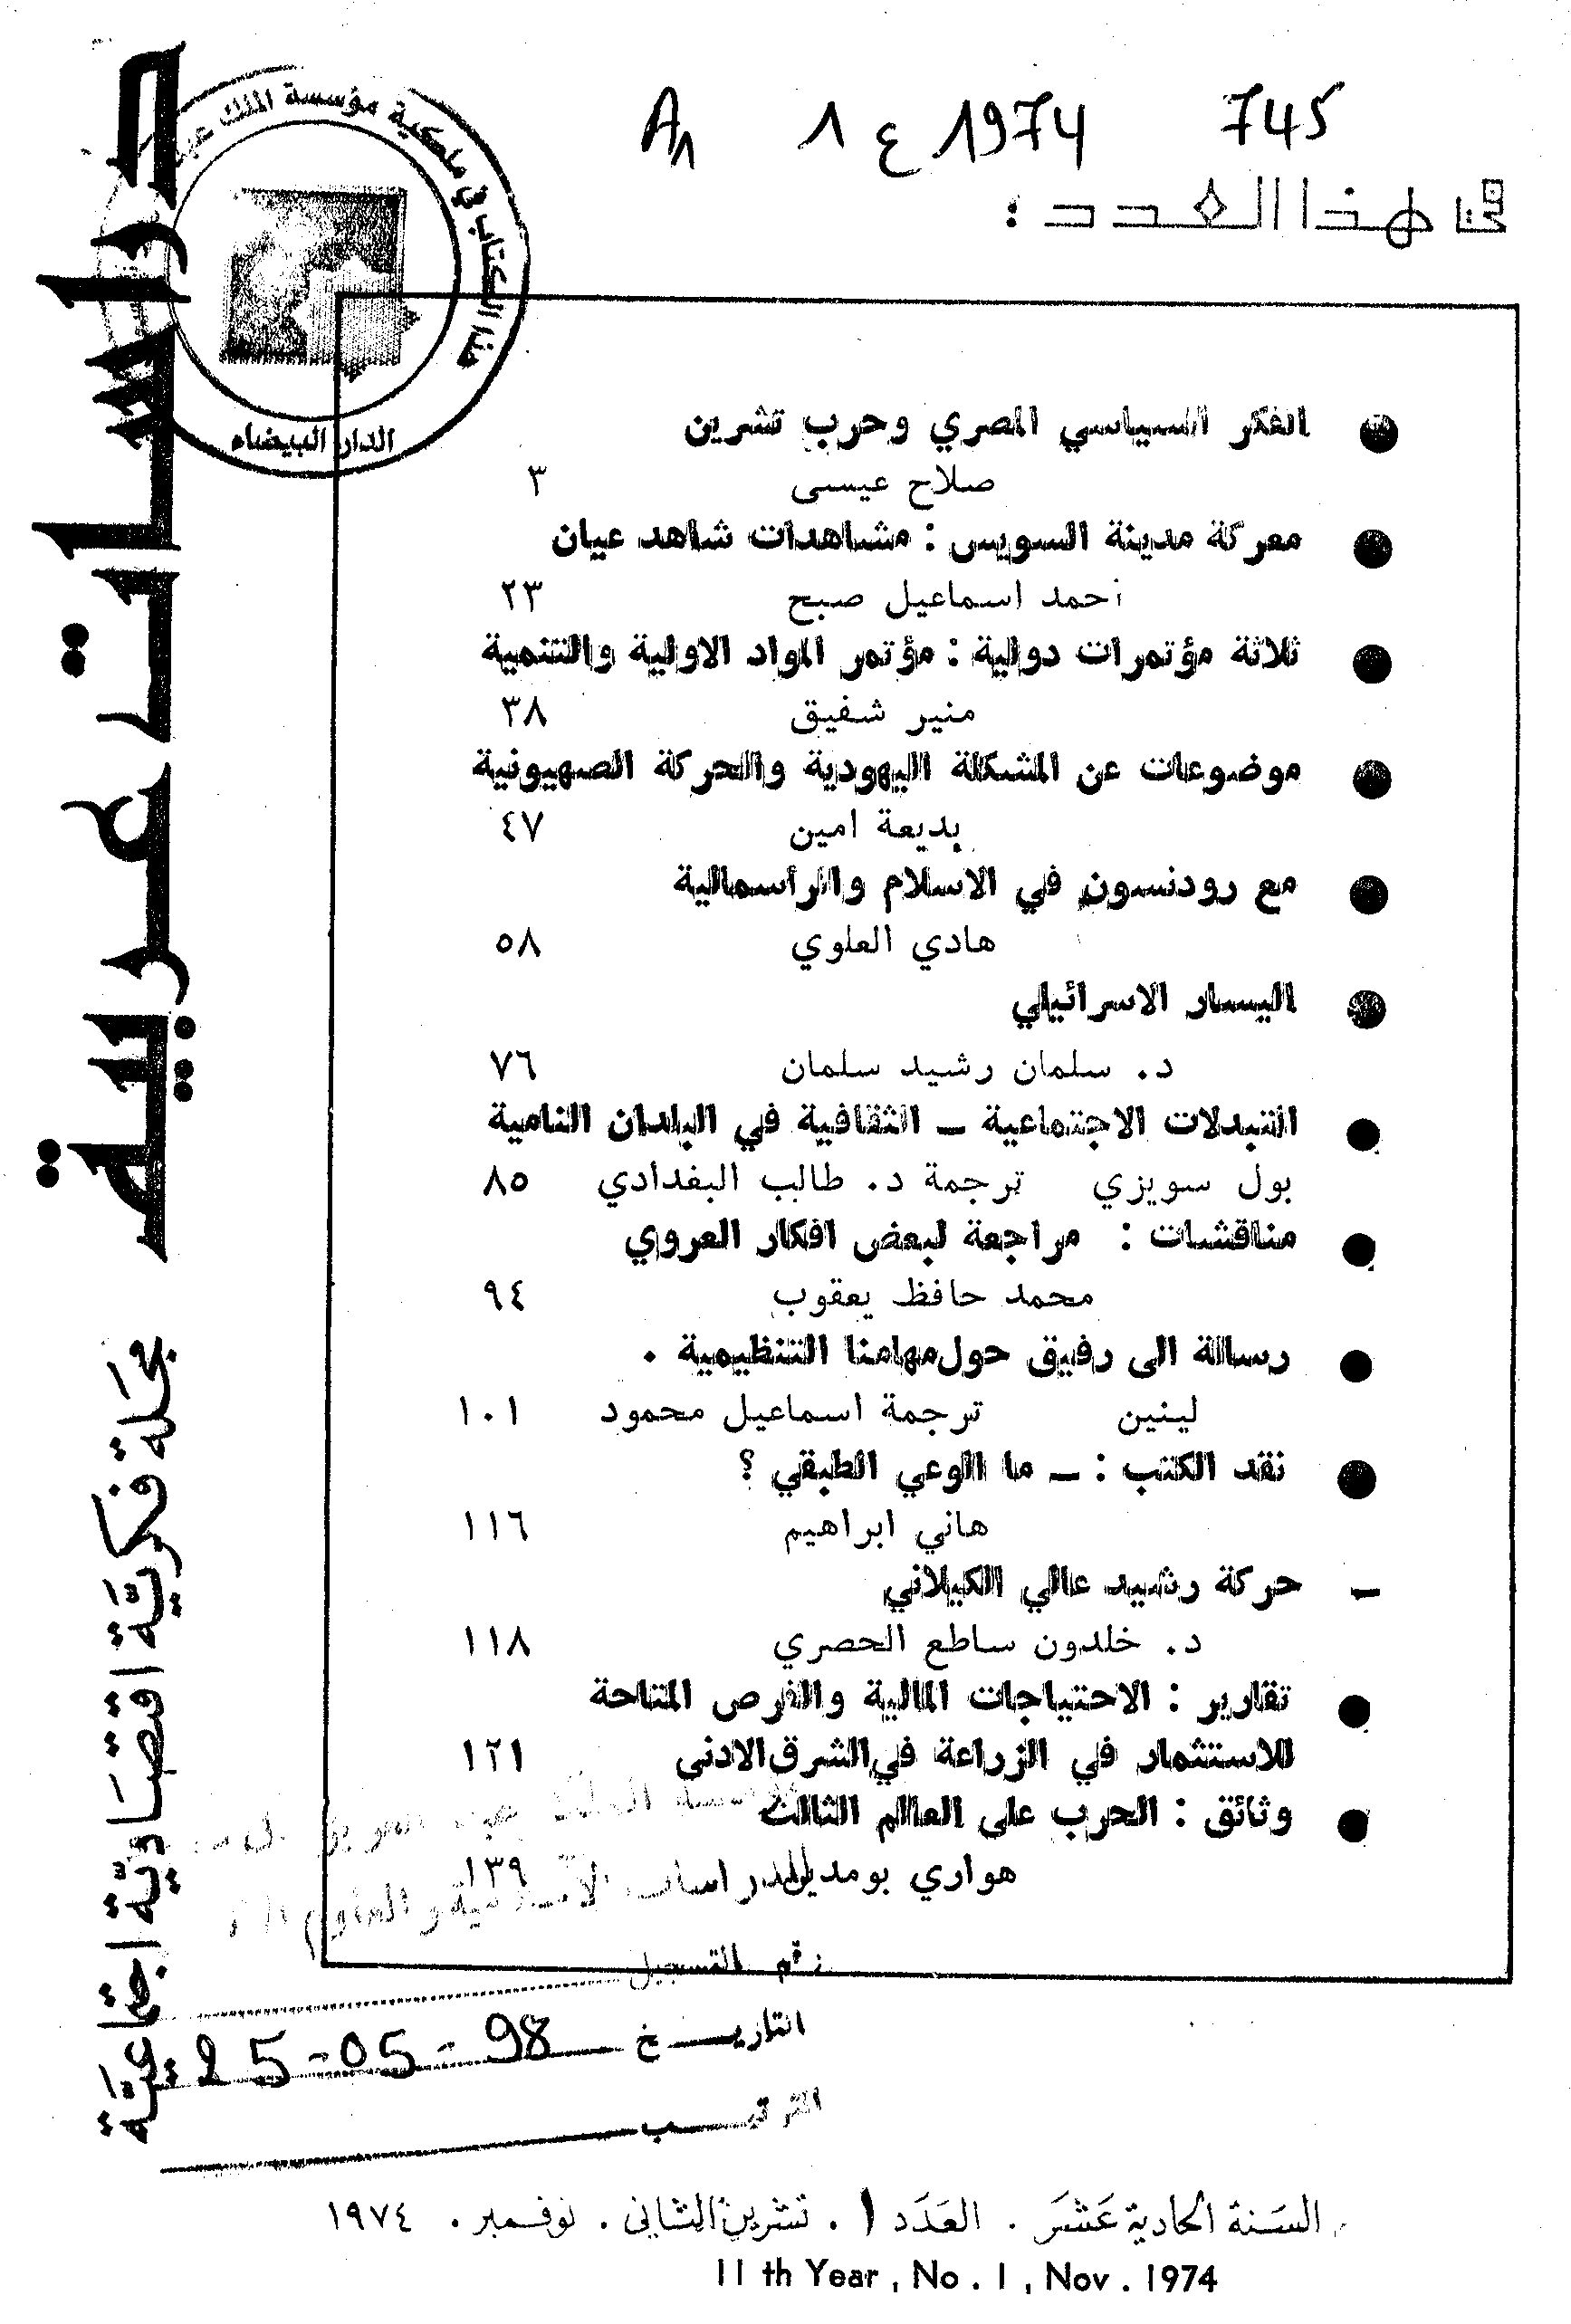 دراسات عربية
مجلة فكرية اقتصادية اجتماعية
هذا الكتاب في ملكية مؤسسة الملك عبد
الدار البيضاء
A1 ع 1 1974 745
في هذا العدد :
● الفكر السياسي المصري وحرب تشرين
صلاح عيسى ٣
● معركة مدينة السويس : مشاهدات شاهد عيان
أحمد اسماعيل صبح ٢٣
● ثلاثة مؤتمرات دولية : مؤتمر المواد الاولية والتنمية
منير شفيق ٣٨
● موضوعات عن المشكلة اليهودية والحركة الصهيونية
بديعة امين ٤٧
● مع رودنسون في الاسلام والرأسمالية
هادي العلوي ٥٨
● اليسار الاسرائيلي
د. سلمان رشيد سلمان ٧٦
● التبدلات الاجتماعية – الثقافية في البلدان النامية
بول سويزي ترجمة د. طالب البغدادي ٨٥
● مناقشات : مراجعة لبعض افكار العروي
محمد حافظ يعقوب ٩٤
● رسالة الى رفيق حول مهامنا التنظيمية .
لينين ترجمة اسماعيل محمود ١٠١
● نقد الكتب : – ما الوعي الطبقي ؟
هاني ابراهيم ١١٦
– حركة رشيد عالي الكيلاني
د. خلدون ساطع الحصري ١١٨
● تقارير : الاحتياجات المالية والفرص المتاحة
للاستثمار في الزراعة في الشرق الادنى ١٢١
● وثائق : الحرب على العالم الثالث
هواري بومدين ١٣٩
رقم التسجيل
التاريخ 25-05-98
الترتيب
السنة الحادية عشر . العدد ١ . تشرين الثاني . نوفمبر . ١٩٧٤
11 th Year , No . 1 , Nov . 1974